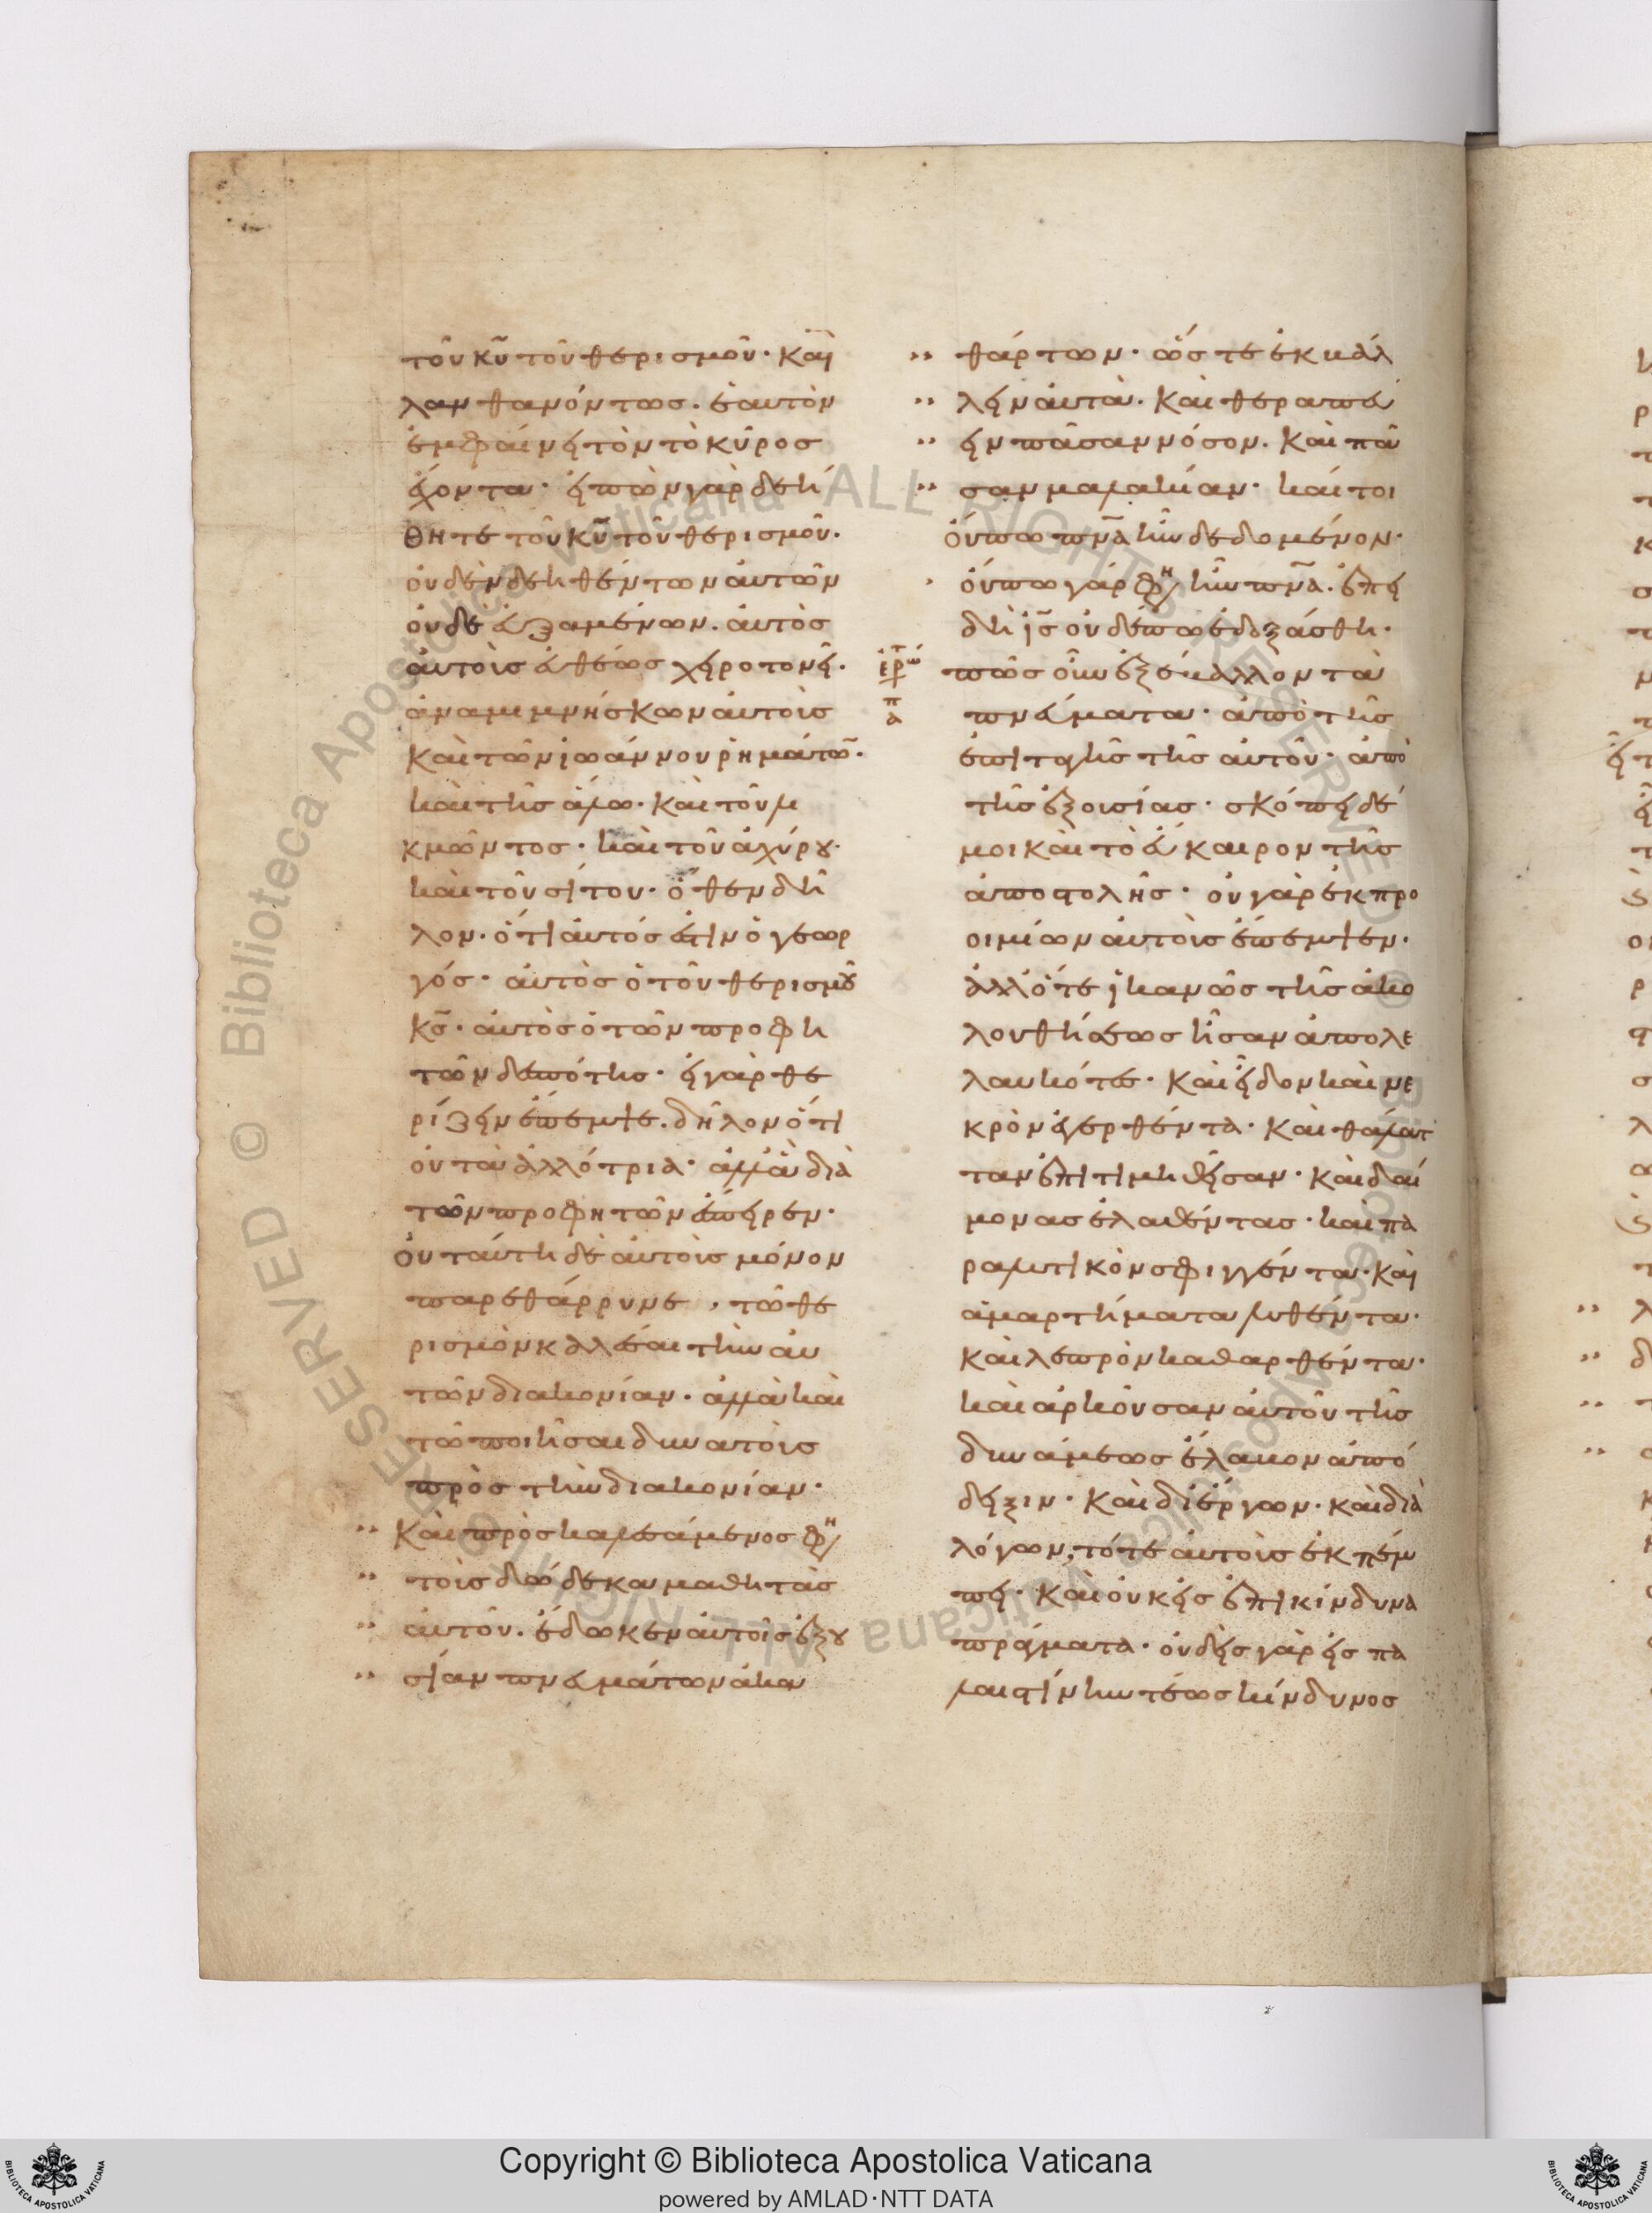 τοῦ κῦ τοῦ θερισμοῦ· καὶ
λανθανόντως. ἑαυτὸν
ἐμφαίνει τὸν τὸ κῦρος
ἔχοντα· εἰπὼν γὰρ δεή
θητε τοῦ κῦ τοῦ θερισμοῦ·
οὐδὲν δεηθέντων αὐτῶν
οὐδὲ εὐξαμένων. αὐτὸς
αὐτοὺς εὐθέως χειροτονεῖ.
ἀναμιμνήσκων αὐτοὺς
καὶ τῶν ἰωάννου ῥημάτω̅·
καὶ τῆς ἅλω· καὶ τοῦ λι
κμῶντος· καὶ τοῦ ἀχύρου·
καὶ τοῦ σίτου· ὅθεν δῆ
λον· ὅτι αὐτός ἐστιν ὁ γεωρ
γός· αὐτὸς ὁ τοῦ θερισμοῦ
κς̅· αὐτὸς ὁ τῶν προφη
τῶν δεσπότης· εἰ γὰρ θε
ρίζειν ἔπεμπε. δῆλον ὅτι
οὐ τὰ ἀλλότρια· ἀλλ' ἃ διὰ
τῶν προφητῶν ἔσπειρεν·
οὐ ταύτη δὲ αὐτοὺς μόνον
παρεθάρρυνε, τῶ θε
ρισμὸν καλέσαι τὴν αὐ
τῶν διακονίαν· ἀλλὰ καὶ
τῶ ποιῆσαι δυνατοὺς
πρὸς τὴν διακονίαν·
" καὶ προσκαλεσάμενος φη
" τοὺς δώδεκα μαθητὰς
" αὐτοῦ. ἔδωκεν αὐτοῖς ἐξου
" σίαν πνευμάτων ἀκα
" θάρτων· ὥστε ἐκβάλ
" λειν αὐτὰ. καὶ θεραπεύ
" ειν πᾶσαν νόσον. καὶ πᾶ
" σαν μαλακίαν· καίτοι
οὔπω πνᾶ ἦν δεδομένον·
οὔπω γάρ φη ἦν πνᾶ. ἐπει
δὴ ις̅ οὐδέπω ἐδοξάσθη·
πῶς οὖν ἐξέβαλλον τὰ
πνεύματα· ἀπὸ τῆς
ἐπιταγῆς τῆς αὐτοῦ· ἀπὸ
τῆς ἐξουσίας· σκόπει δέ
μοι καὶ τὸ εὔκαιρον τῆς
ἀποστολῆς· οὐ γὰρ ἐκ προ
οιμίων αὐτοὺς ἔπεμπεν·
ἀλλ' ὅτε ἱκανῶς τῆς ἀκο
λουθήσεως ἦσαν ἀπολε
λαυκότες· καὶ εἶδον καὶ νε
κρὸν ἐγερθέντα· καὶ θάλατ
ταν ἐπιτιμηθεῖσαν· καὶ δαί
μονας ἐλαθέντας· καὶ πα
ραλυτικὸν σφιγγέντα· καὶ
ἁμαρτήματα λυθέντα·
καὶ λεπρὸν καθαρθέντα·
καὶ ἀρκοῦσαν αὐτοῦ τῆς
δυνάμεως ἔλαβον ἀπό
δειξιν· καὶ δι' ἔργων· καὶ διὰ
λόγων, τότε αὐτοὺς ἐκπέμ
πει· καὶ οὐκ εἰς ἐπικίνδυνα
πράγματα· οὐδεὶς γὰρ εἰς πα
λαιστίνην τέως κίνδυνος
Copyright © Biblioteca Apostolica Vaticana
powered by AMLAD·NTT DATA